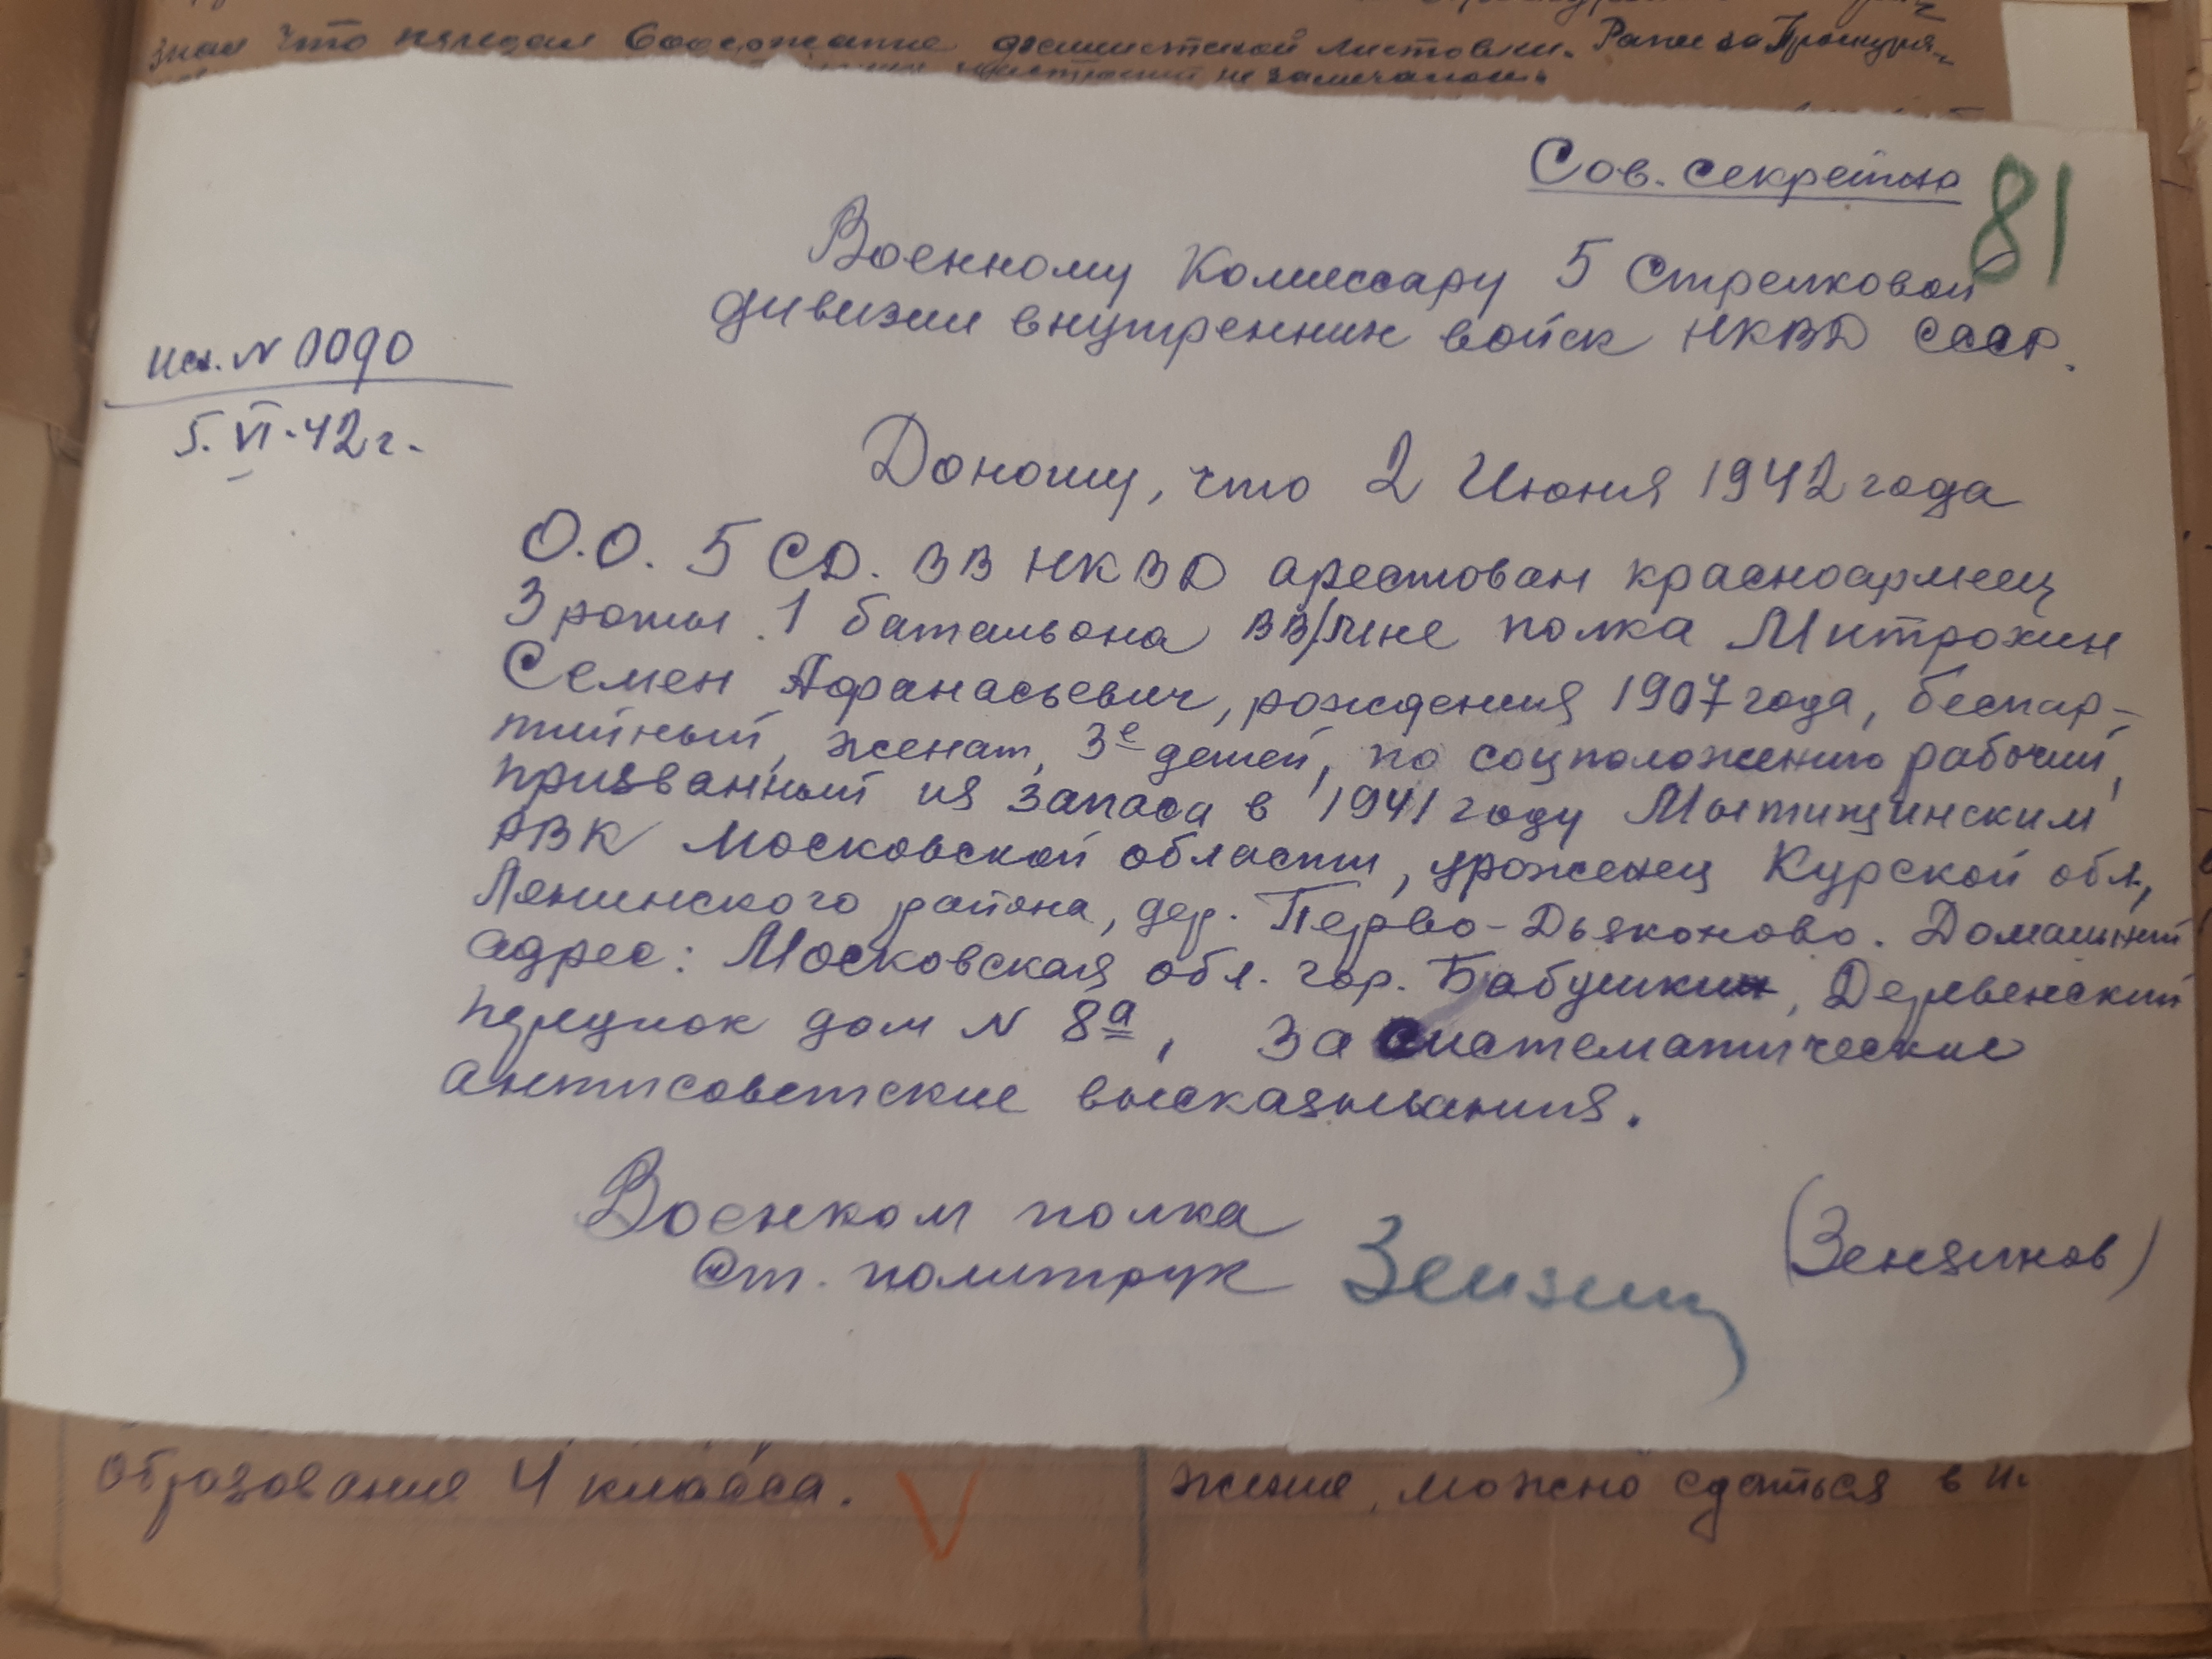 знал что передал содержание фашистской листовки. Ранее за
не замечалось.
Сов. секретно
81
Военному Комиссару 5 Стрелковой
дивизии внутренних войск НКВД СССР.
исх. N 0090
5. VI-42 г.
Доношу, что 2 Июня 1942 года
О.О. 5 СД. ВВ НКВД арестован красноармеец
3 роты 1 батальона ВВ/ полка Митрохин
Семен Афанасьевич, рождения 1907 года, беспар-
тийный, женат, 3е детей, по соцположению рабочий,
призванный из запаса в 1941 году Мытищинским
РВК Московской области, уроженец Курской обл.,
Ленинского района, дер. Перво-Дьяконово. Домашний
адрес: Московская обл. гор. Бабушкин, Деревенский
переулок дом N 8а, За систематические
антисоветские высказывания.
Военком полка
Ст. политрук
(Зензинов)
образование 4 класса.
жение, можно сдаться в